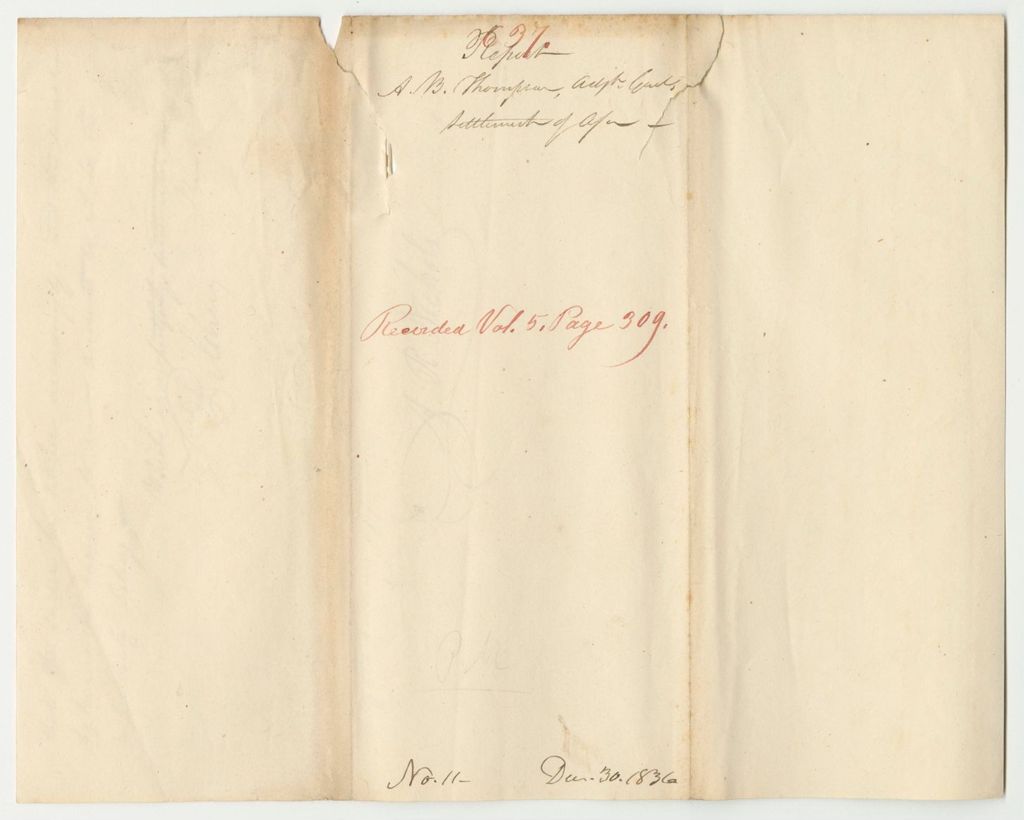 637.
Report
A. B. Thompson, Adjt. Genl.
settlement of
Recorded Vol. 5. Page 309.
No. 11-
Dec. 30. 1836